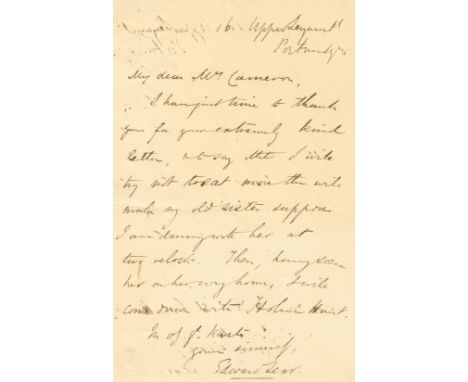 16. Upper Seymour St
Portman Sqre
My dear Mrs Cameron,
I have just time to thank
you for your extremely kind
letter, & to say that I will
try not to eat more than will
make my old sister suppose
I am dining with her at
two o'clock. Then, having seen
her on her way home, I will
come down with Holman Hunt.
In gt haste
yours sincerely,
Edward Lear